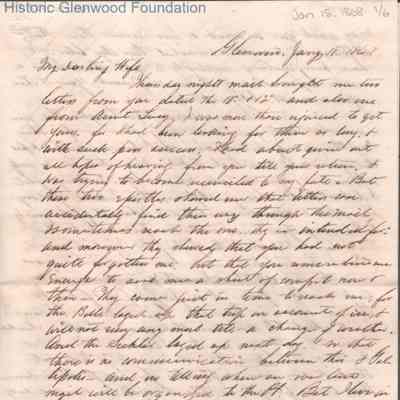 Historic Glenwood Foundation
Jan 18, 1868 1/6
Glenwood, Jany 18, 1868
My Darling Wife,
Thursday night mail brought me two
letters from you dated the 8th & 12th and also one
from Aunt Lucy, I was more than rejoiced to get
yours, for I had been looking for them so long, &
with such poor success, I had about given out
all hope of hearing from you till your return, &
was trying to become reconciled to my fate. But
these two epistles showed me that letters can
accidentally find their way through the mail
sometimes, reach the one they're intended for;
and moreover they showed that you had not
quite forgotten me, but that you
enough to send me a word of comfort now &
then. They came just in time to reach me, for
the Belle layed up that trip on account of ice, &
will not run any more till a change of weather.
And the laid up next day, so that
there is no communication between this &
and no telling when an over land
mail will be organized to the Pt. But I live in